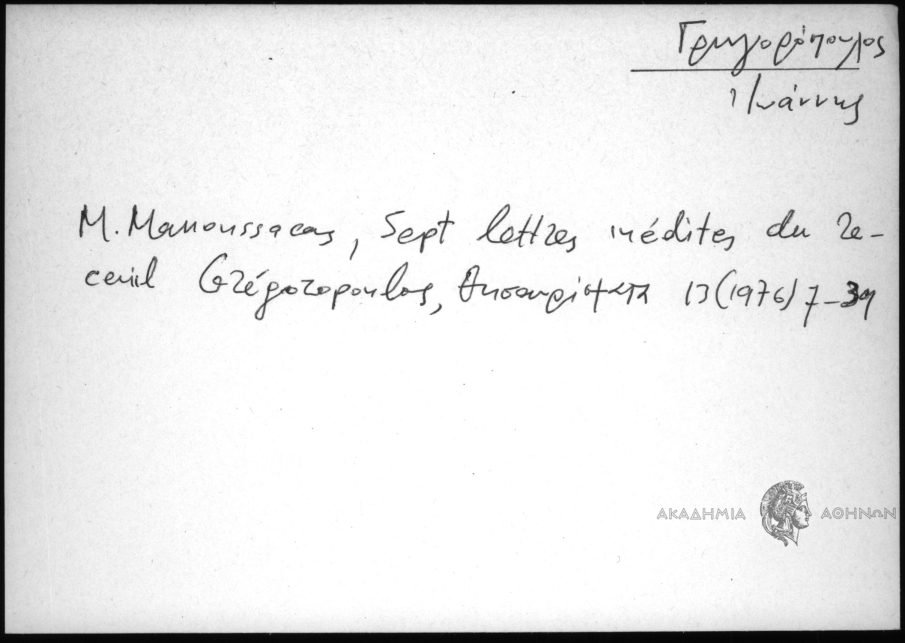 Γρηγορόπουλος
Ἰωάννης
M. Manoussacas, Sept lettres inédites du re-
ceuil Grégoropoulos, Θησαυρίσματα 13 (1976) 7-39
ΑΚΑΔΗΜΙΑ ΑΘΗΝΩΝ